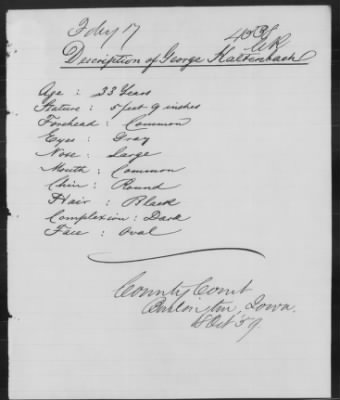 Description of George Kaltenbach
Age : 33 Years
Stature : 5 feet 9 inches
Forehead : Common
Eyes : Gray
Nose : Large
Mouth : Common
Chin : Round
Hair : Black
Complexion : Dark
Face : Oval
County Court
Burlington, Iowa.
Oct 59